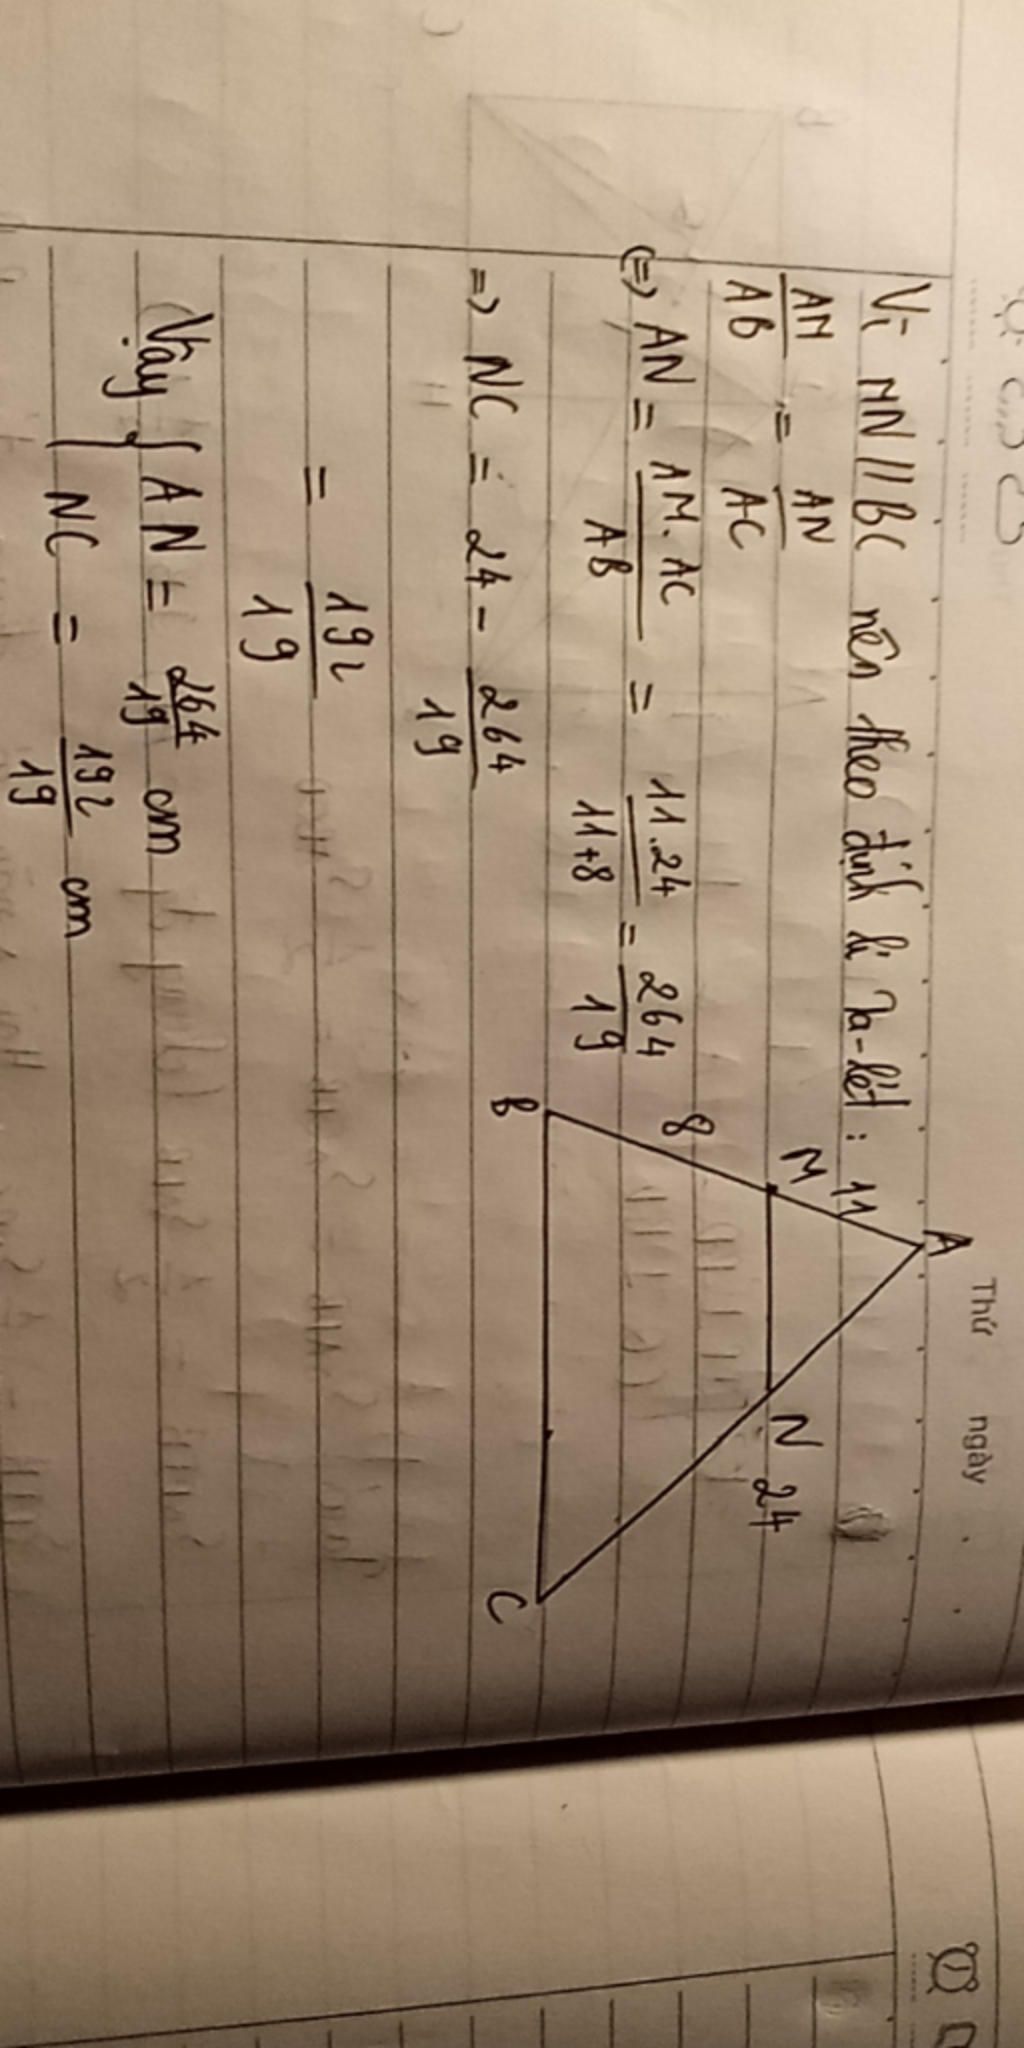 Thứ ngày
Vì MN // BC nên theo định lí Ta-lét:
AM/AB = AN/AC
(=) AN = AM.AC/AB = 11.24/11+8 = 264/19
=> NC = 24 - 264/19
= 192/19
Vậy { AN = 264/19 cm
NC = 192/19 cm
A
11
M
N
24
8
B
C